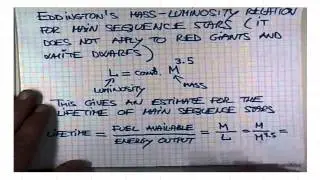 EDDINGTON'S MASS-LUMINOSITY RELATION
FOR MAIN SEQUENCE STARS (IT
DOES NOT APPLY TO RED GIANTS AND
WHITE DWARFS)
L = const. M^3.5
LUMINOSITY MASS
THIS GIVES AN ESTIMATE FOR THE
LIFETIME OF MAIN SEQUENCE STARS
LIFETIME = FUEL AVAILABLE / ENERGY OUTPUT = M / L = M / M^3.5 =